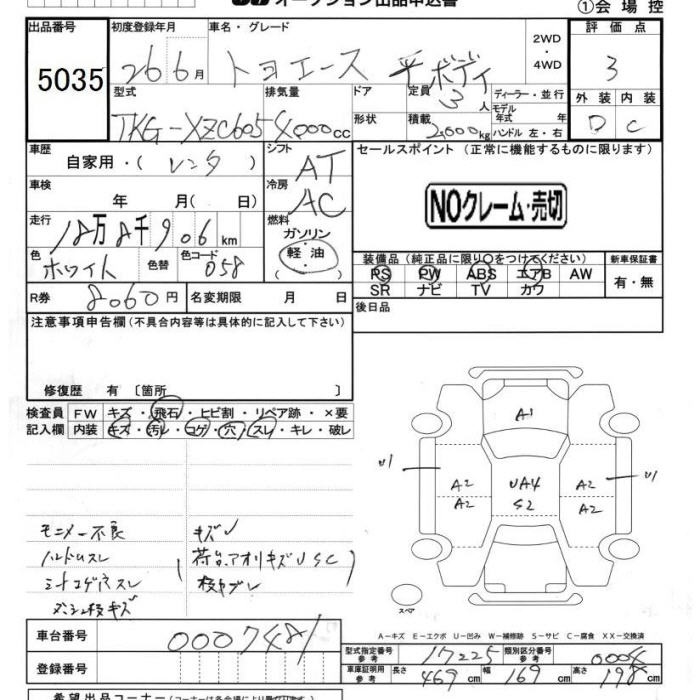 オークション出品申込書
①会場控
出品番号 初度登録年月 車名・グレード 2WD・4WD 評価点
5035 26 6月 トヨエース 平ボディ 3
型式 排気量 ドア 定員 3人 ディーラー・並行 外装 内装
TKG-XZC605 4000cc 形状 積載 2,000kg モデル年式 年 ハンドル 左・右 D C
車歴 シフト セールスポイント (正常に機能するものに限ります)
自家用・(レンタ) AT
車検 冷房
年 月( 日) AC
NOクレーム・売切
走行 燃料
18万8千906km ガソリン
色 色替 色コード 軽油 装備品 (純正品に限り○をつけてください) 新車保証書
ホワイト 058 PS PW ABS エアB AW 有・無
SR ナビ TV カワ
R券 8060円 名変期限 月 日 後日品
注意事項申告欄(不具合内容等は具体的に記入して下さい)
修復歴 有 〔箇所 〕
検査員 FW キズ・飛石・ヒビ割・リペア跡・×要
記入欄 内装 キズ・汚レ・コゲ・穴・スレ・キレ・破レ
A1
U1 A2 UA4 A2 U1
A2 S2 A2
モニター不良 キズ
ハンドルスレ 荷台アオリキズUSC
シートコゲ穴スレ
ダッシュ枝キズ
スペア
A-キズ E-エクボ U-凹み W-補修跡 S-サビ C-腐食 XX-交換済
車台番号 0007481
型式指定番号 参考 17225 類別区分番号 参考 0004
登録番号 車庫証明用 参考 長さ 469cm 幅 169cm 高さ 198cm
希望出品コーナー(コーナーは各会場により